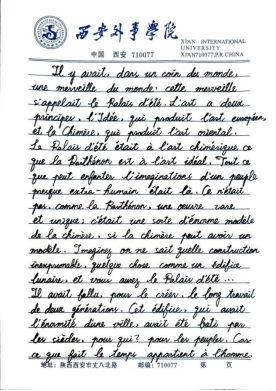 西安外事學院
XI'AN INTERNATIONAL
UNIVERSITY
中国 西安 710077
XIAN710077,P.R.CHINA
Il y avait, dans un coin du monde,
une merveille du monde: cette merveille
s'appelait le Palais d'été. L'art a deux
principes, l'Idée, qui produit l'art européen,
et la Chimère, qui produit l'art oriental.
Le Palais d'été était à l'art chimérique ce
que la Parthénon est à l'art idéal. Tout ce
que peut enfanter l'imaginations d'un peuple
presque extra-humain était là. Ce n'était
pas, comme la Parthénon, une œuvre rare
et unique; c'était une sorte d'énorme modèle
de la chimère, si la chimère peut avoir un
modèle. Imaginez on ne sait quelle construction
inexprimable, quelque chose comme un édifice
lunaire, et vous aurez le Palais d'été...
Il avait fallu, pour le créer, le long travail
de deux générations. Cet édifice, qui avait
l'énormité d'une ville, avait été bâti par
les siècles, pour qui? pour les peuples. Car
ce que fait le temps appartient à l'homme.
地址: 陕西西安市丈八北路 邮编: 710077 第 页